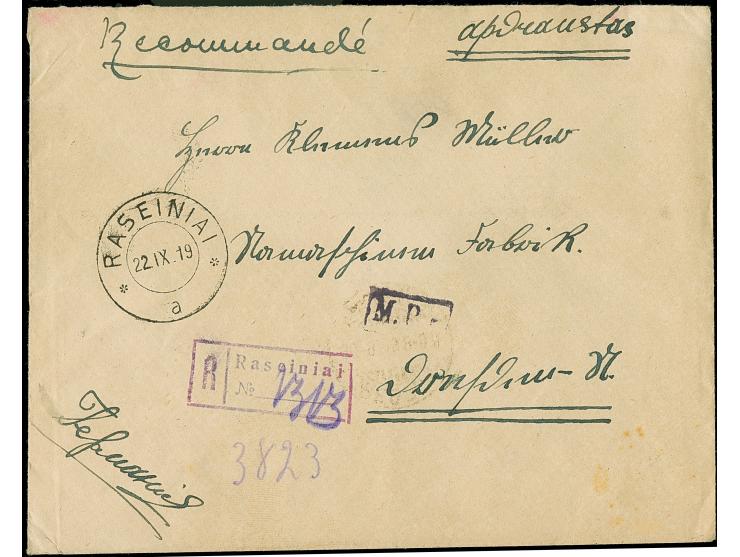 Recommandé
apdraustas
Herrn Klemens Müller
Nämaschinen Fabrik.
RASEINIAI
22.IX.19
a
M.P.
R Raseiniai
№
Dresden-N.
3823
Германия